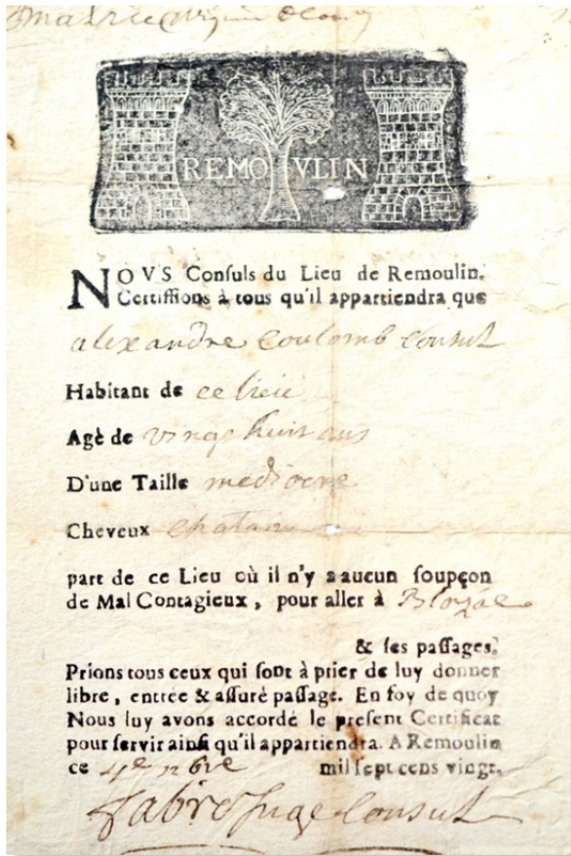 REMOVLIN
NOVS Conſuls du Lieu de Remoulin.
Certiffions à tous qu'il appartiendra que
alexandre coulomb consul
Habitant de ce lieu
Agè de vingt huit ans
D'une Taille mediocre
Cheveux chatain
part de ce Lieu où il n'y a aucun ſoupçon
de Mal Contagieux, pour aller à
& ſes paſſages.
Prions tous ceux qui ſont à prier de luy donner
libre, entrée & aſſuré paſſage. En foy de quoy
Nous luy avons accordé le preſent Certificat
pour ſervir ainſi qu'il appartiendra. A Remoulin
ce 4e mil ſept cens vingt,
Consul